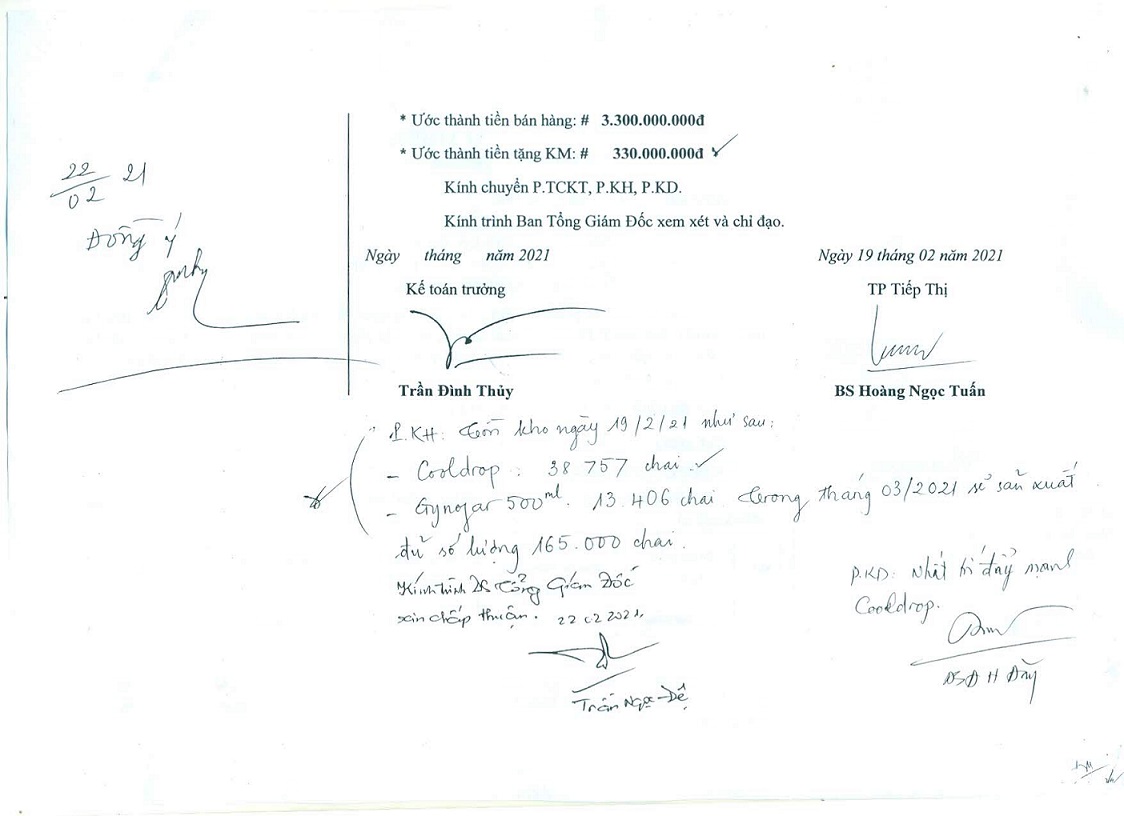 * Ước thành tiền bán hàng: # 3.300.000.000đ
* Ước thành tiền tặng KM: # 330.000.000đ
Kính chuyển P.TCKT, P.KH, P.KD.
Kính trình Ban Tổng Giám Đốc xem xét và chỉ đạo.
22/02 21
Đồng ý
Ngày tháng năm 2021
Kế toán trưởng
Trần Đình Thủy
Ngày 19 tháng 02 năm 2021
TP Tiếp Thị
BS Hoàng Ngọc Tuấn
P.KH: Tồn kho ngày 19/2/21 như sau:
- Cooldrop: 38 757 chai
- Gynofar 500ml. 13.406 chai. Trong tháng 03/2021 sẽ sản xuất
đủ số lượng 165.000 chai.
Kính trình DS Tổng Giám Đốc
xin chấp thuận. 22 02 2021.
Trần Ngọc Dê
P.KD: Nhất trí đẩy mạnh
Cooldrop.